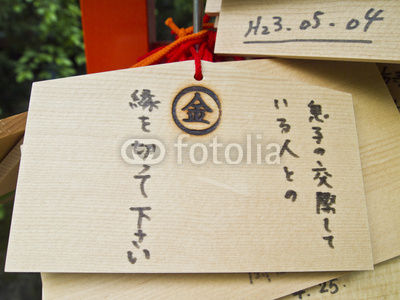 H23.05.04
金
息子の交際して
いる人との
縁を切って下さい
fotolia
25.